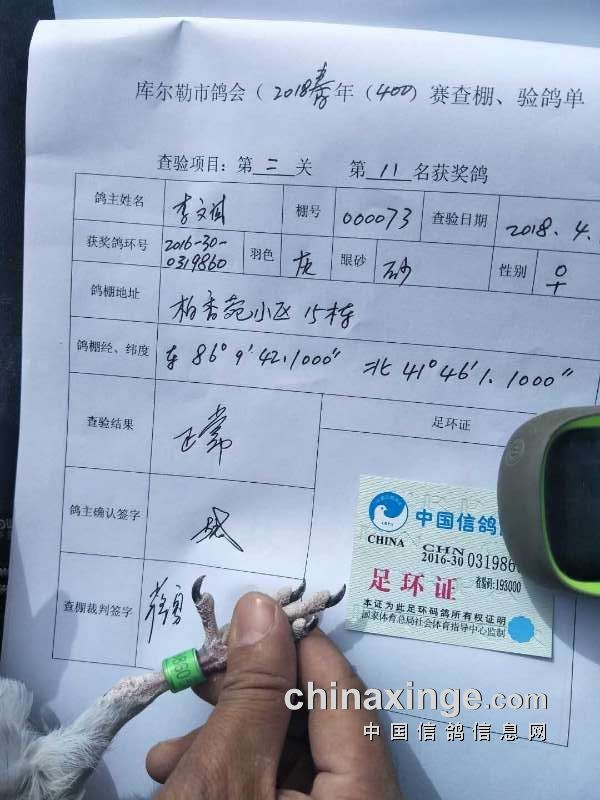 库尔勒市鸽会（2018春年（400）赛查棚、验鸽单
查验项目：第二关 第11名获奖鸽
鸽主姓名 李文 棚号 000073 查验日期 2018.4.
获奖鸽环号 2016-30-0319860 羽色 灰 眼砂 砂 性别 ♀
鸽棚地址 柏香苑小区 15栋
鸽棚经、纬度 东 86°9′42.1000″ 北 41°46′1.1000″
查验结果 正常 足环证
鸽主确认签字
查棚裁判签字
中国信鸽
CHINA CHN
2016-30 031986
足环证 193000
本证为此足环码鸽所有权证明
国家体育总局社会体育指导中心监制
chinaxinge.com
中国信鸽信息网